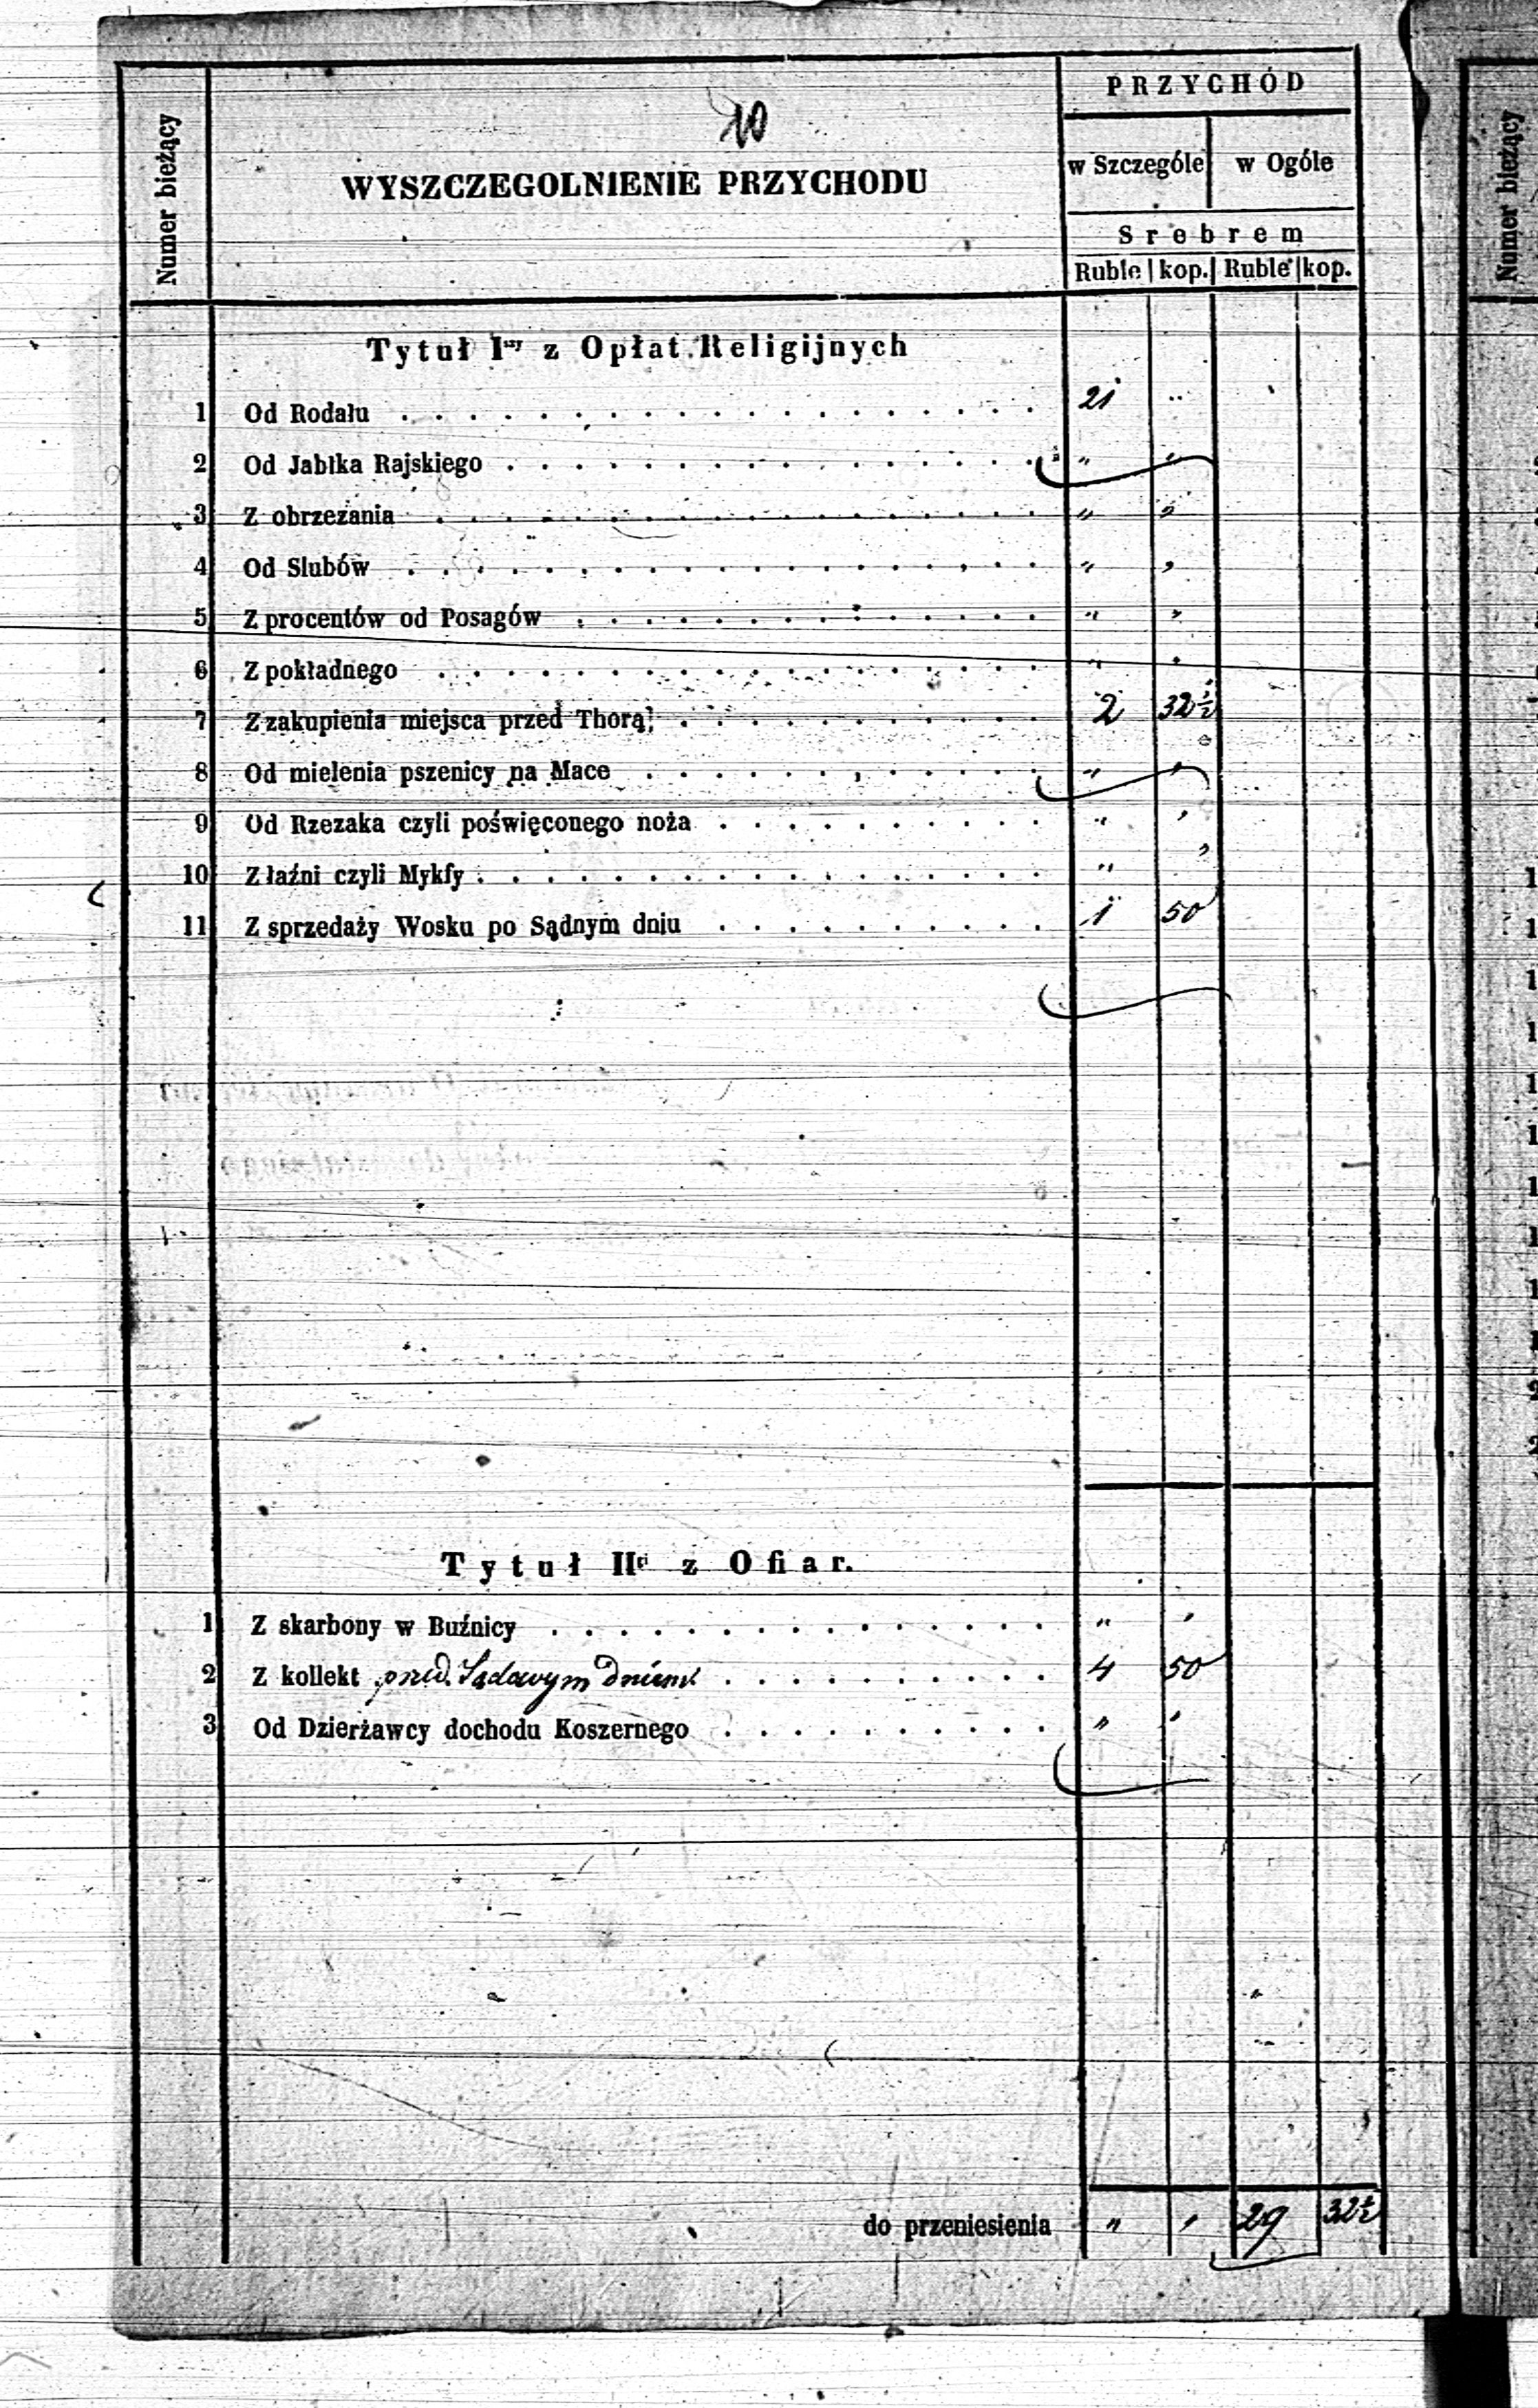 10
Numer bieżący
WYSZCZEGOLNIENIE PRZYCHODU
PRZYCHÓD
w Szczególe w Ogóle
Srebrem
Ruble kop. Ruble kop.
Tytuł Iszy z Opłat Religijnych
1 Od Rodału . . . . . . . . . . . . . . . . . . . 21 "
2 Od Jabłka Rajskiego . . . . . . . . . . . . . . . . " "
3 Z obrzezania . . . . . . . . . . . . . . . . . . " "
4 Od Slubów . . . . . . . . . . . . . . . . . . . " "
5 Z procentów od Posagów . . . . . . . . . . . . . . " "
6 Z pokładnego . . . . . . . . . . . . . . . . . . " "
7 Z zakupienia miejsca przed Thorą . . . . . . . . . . . 2 32½
8 Od mielenia pszenicy na Mace . . . . . . . . . . . . " "
9 Od Rzezaka czyli poświęconego noża . . . . . . . . . . " "
10 Z łaźni czyli Mykfy . . . . . . . . . . . . . . . . . " "
11 Z sprzedaży Wosku po Sądnym dniu . . . . . . . . . . 1 50
Tytuł IIgi z Ofiar.
1 Z skarbony w Buźnicy . . . . . . . . . . . . . . . " "
2 Z kollekt przed Sądowym Dniem . . . . . . . . . . 4 50
3 Od Dzierżawcy dochodu Koszernego . . . . . . . . . . " "
do przeniesienia " " 29 32½
Numer bieżący